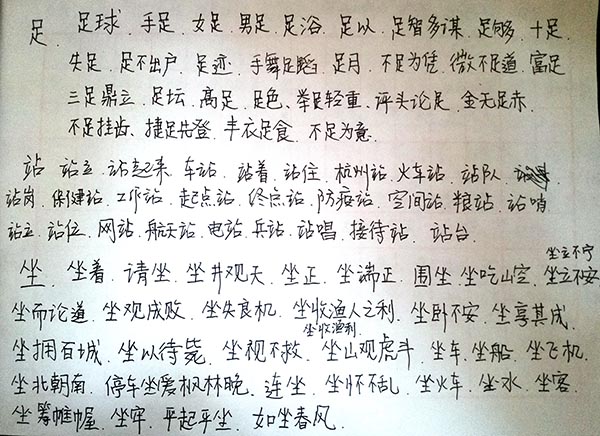 足 足球 手足 女足 男足 足浴 足以 足智多谋 足够 十足
失足 足不出户 足迹 手舞足蹈 足月 不足为凭 微不足道 富足
三足鼎立 足坛 高足 足色、举足轻重 评头论足 金无足赤
不足挂齿、捷足先登 丰衣足食 不足为意
站 站立 站起来 车站 站着 站住 杭州站 火车站 站队
站岗 保健站 工作站 起点站 终点站 防疫站 空间站 粮站 站哨
站立 站位 网站 航天站 电站 兵站 站唱 接待站 站台
坐立不宁
坐 坐着 请坐 坐井观天 坐正 坐端正 围坐 坐吃山空 坐立不安
坐而论道 坐观成败 坐失良机 坐收渔人之利 坐卧不安 坐享其成
坐收渔利
坐拥百城 坐以待毙 坐视不救 坐山观虎斗 坐车 坐船 坐飞机
坐北朝南 停车坐爱枫林晚 连坐 坐怀不乱 坐火车 坐水 坐客
坐筹帷幄 坐牢 平起平坐 如坐春风